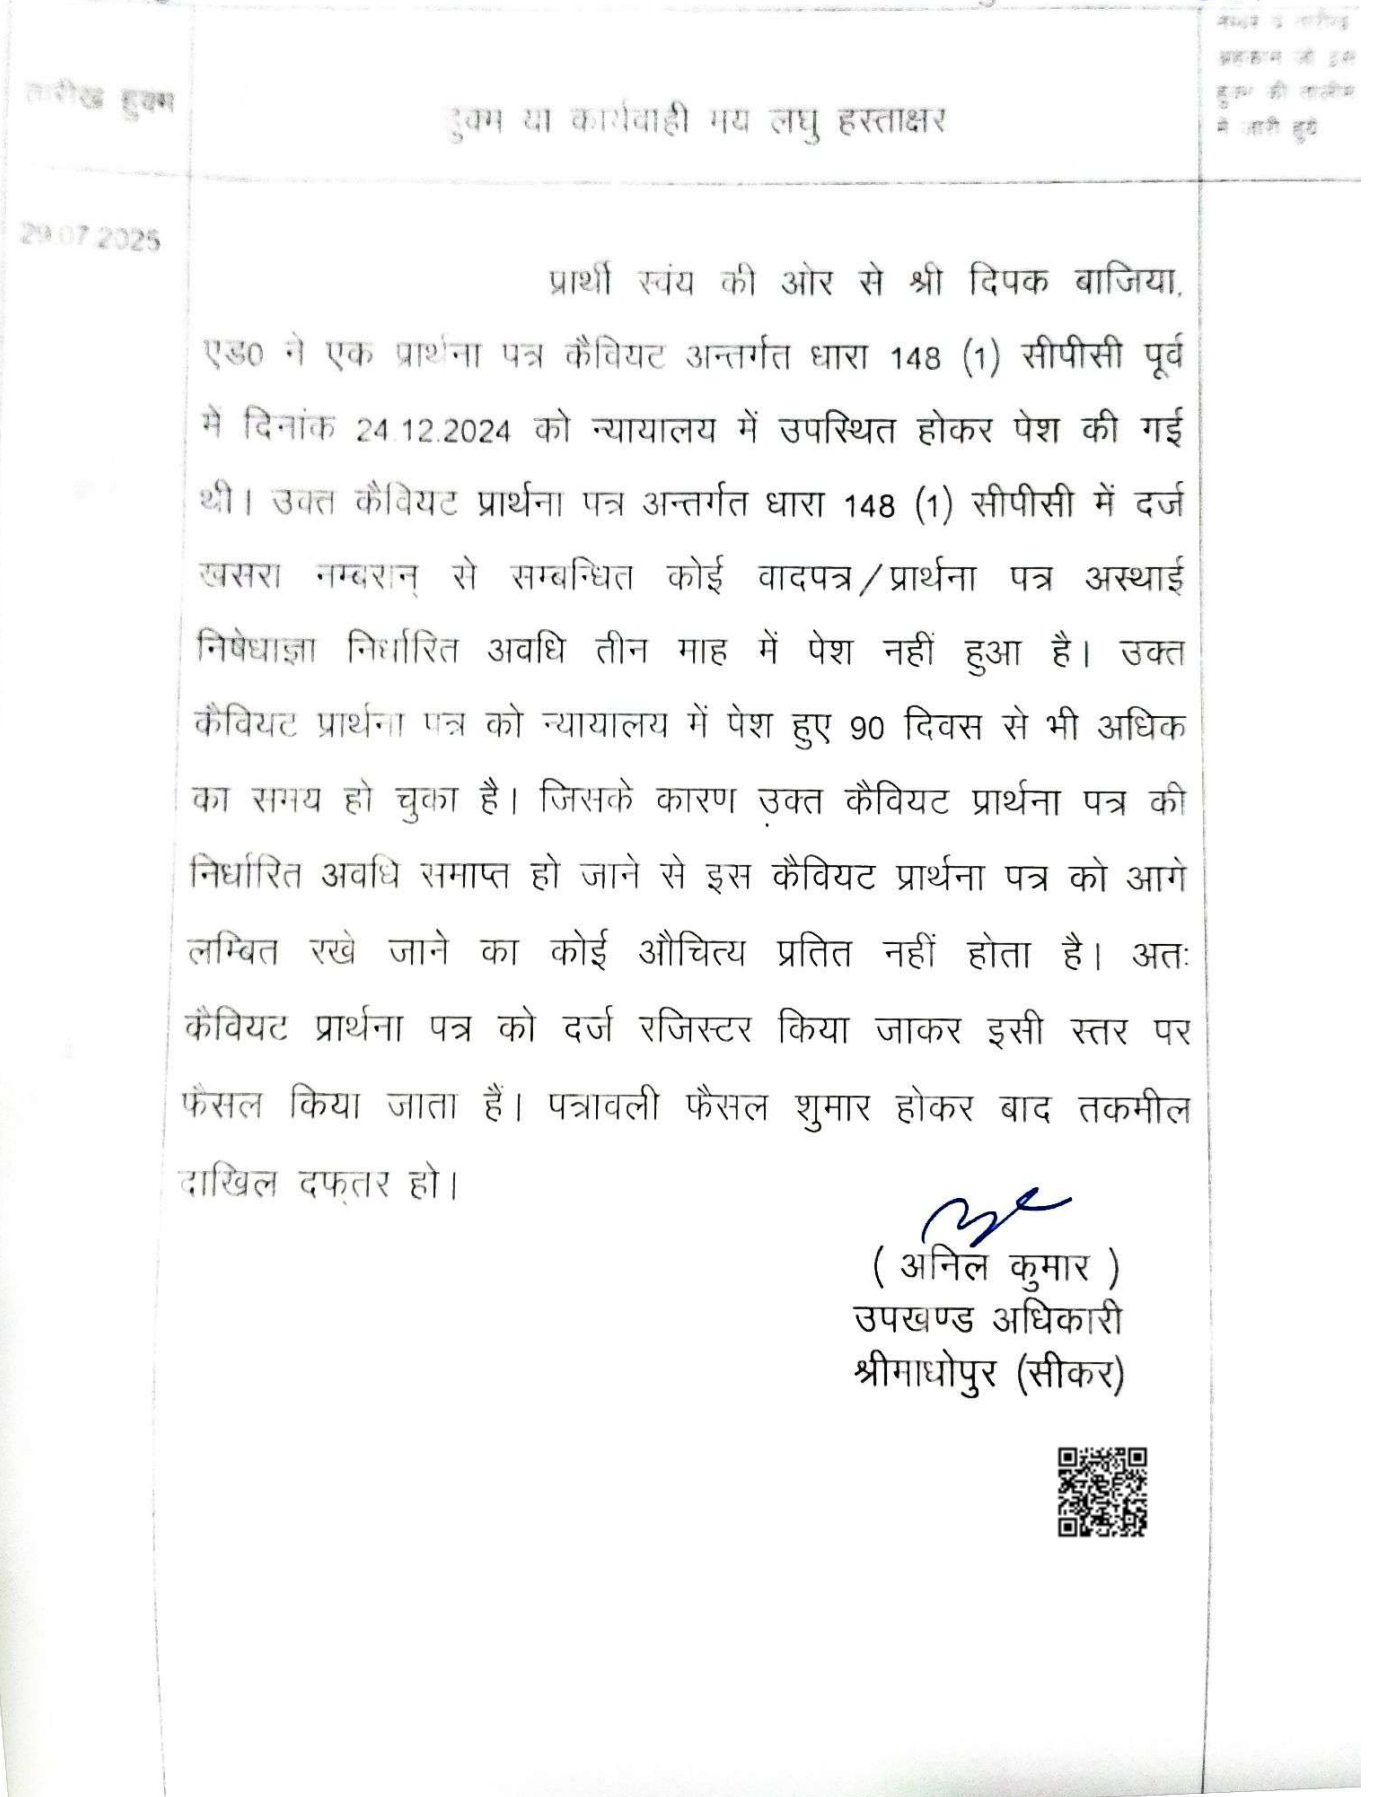 तारीख हुक्म
हुक्म या कार्यवाही मय लघु हस्ताक्षर
नम्बर व तारीख
अहकाम जो इस
हुक्म की तालीम
मे जारी हुये
29.07.2025
प्रार्थी स्वंय की ओर से श्री दिपक बाजिया,
एड0 ने एक प्रार्थना पत्र कैवियट अन्तर्गत धारा 148 (1) सीपीसी पूर्व
मे दिनांक 24.12.2024 को न्यायालय में उपस्थित होकर पेश की गई
थी। उक्त कैवियट प्रार्थना पत्र अन्तर्गत धारा 148 (1) सीपीसी में दर्ज
खसरा नम्बरान् से सम्बन्धित कोई वादपत्र/प्रार्थना पत्र अस्थाई
निषेधाज्ञा निर्धारित अवधि तीन माह में पेश नहीं हुआ है। उक्त
कैवियट प्रार्थना पत्र को न्यायालय में पेश हुए 90 दिवस से भी अधिक
का समय हो चुका है। जिसके कारण उक्त कैवियट प्रार्थना पत्र की
निर्धारित अवधि समाप्त हो जाने से इस कैवियट प्रार्थना पत्र को आगे
लम्बित रखे जाने का कोई औचित्य प्रतित नहीं होता है। अतः
कैवियट प्रार्थना पत्र को दर्ज रजिस्टर किया जाकर इसी स्तर पर
फैसल किया जाता हैं। पत्रावली फैसल शुमार होकर बाद तकमील
दाखिल दफ्तर हो।
( अनिल कुमार )
उपखण्ड अधिकारी
श्रीमाधोपुर (सीकर)